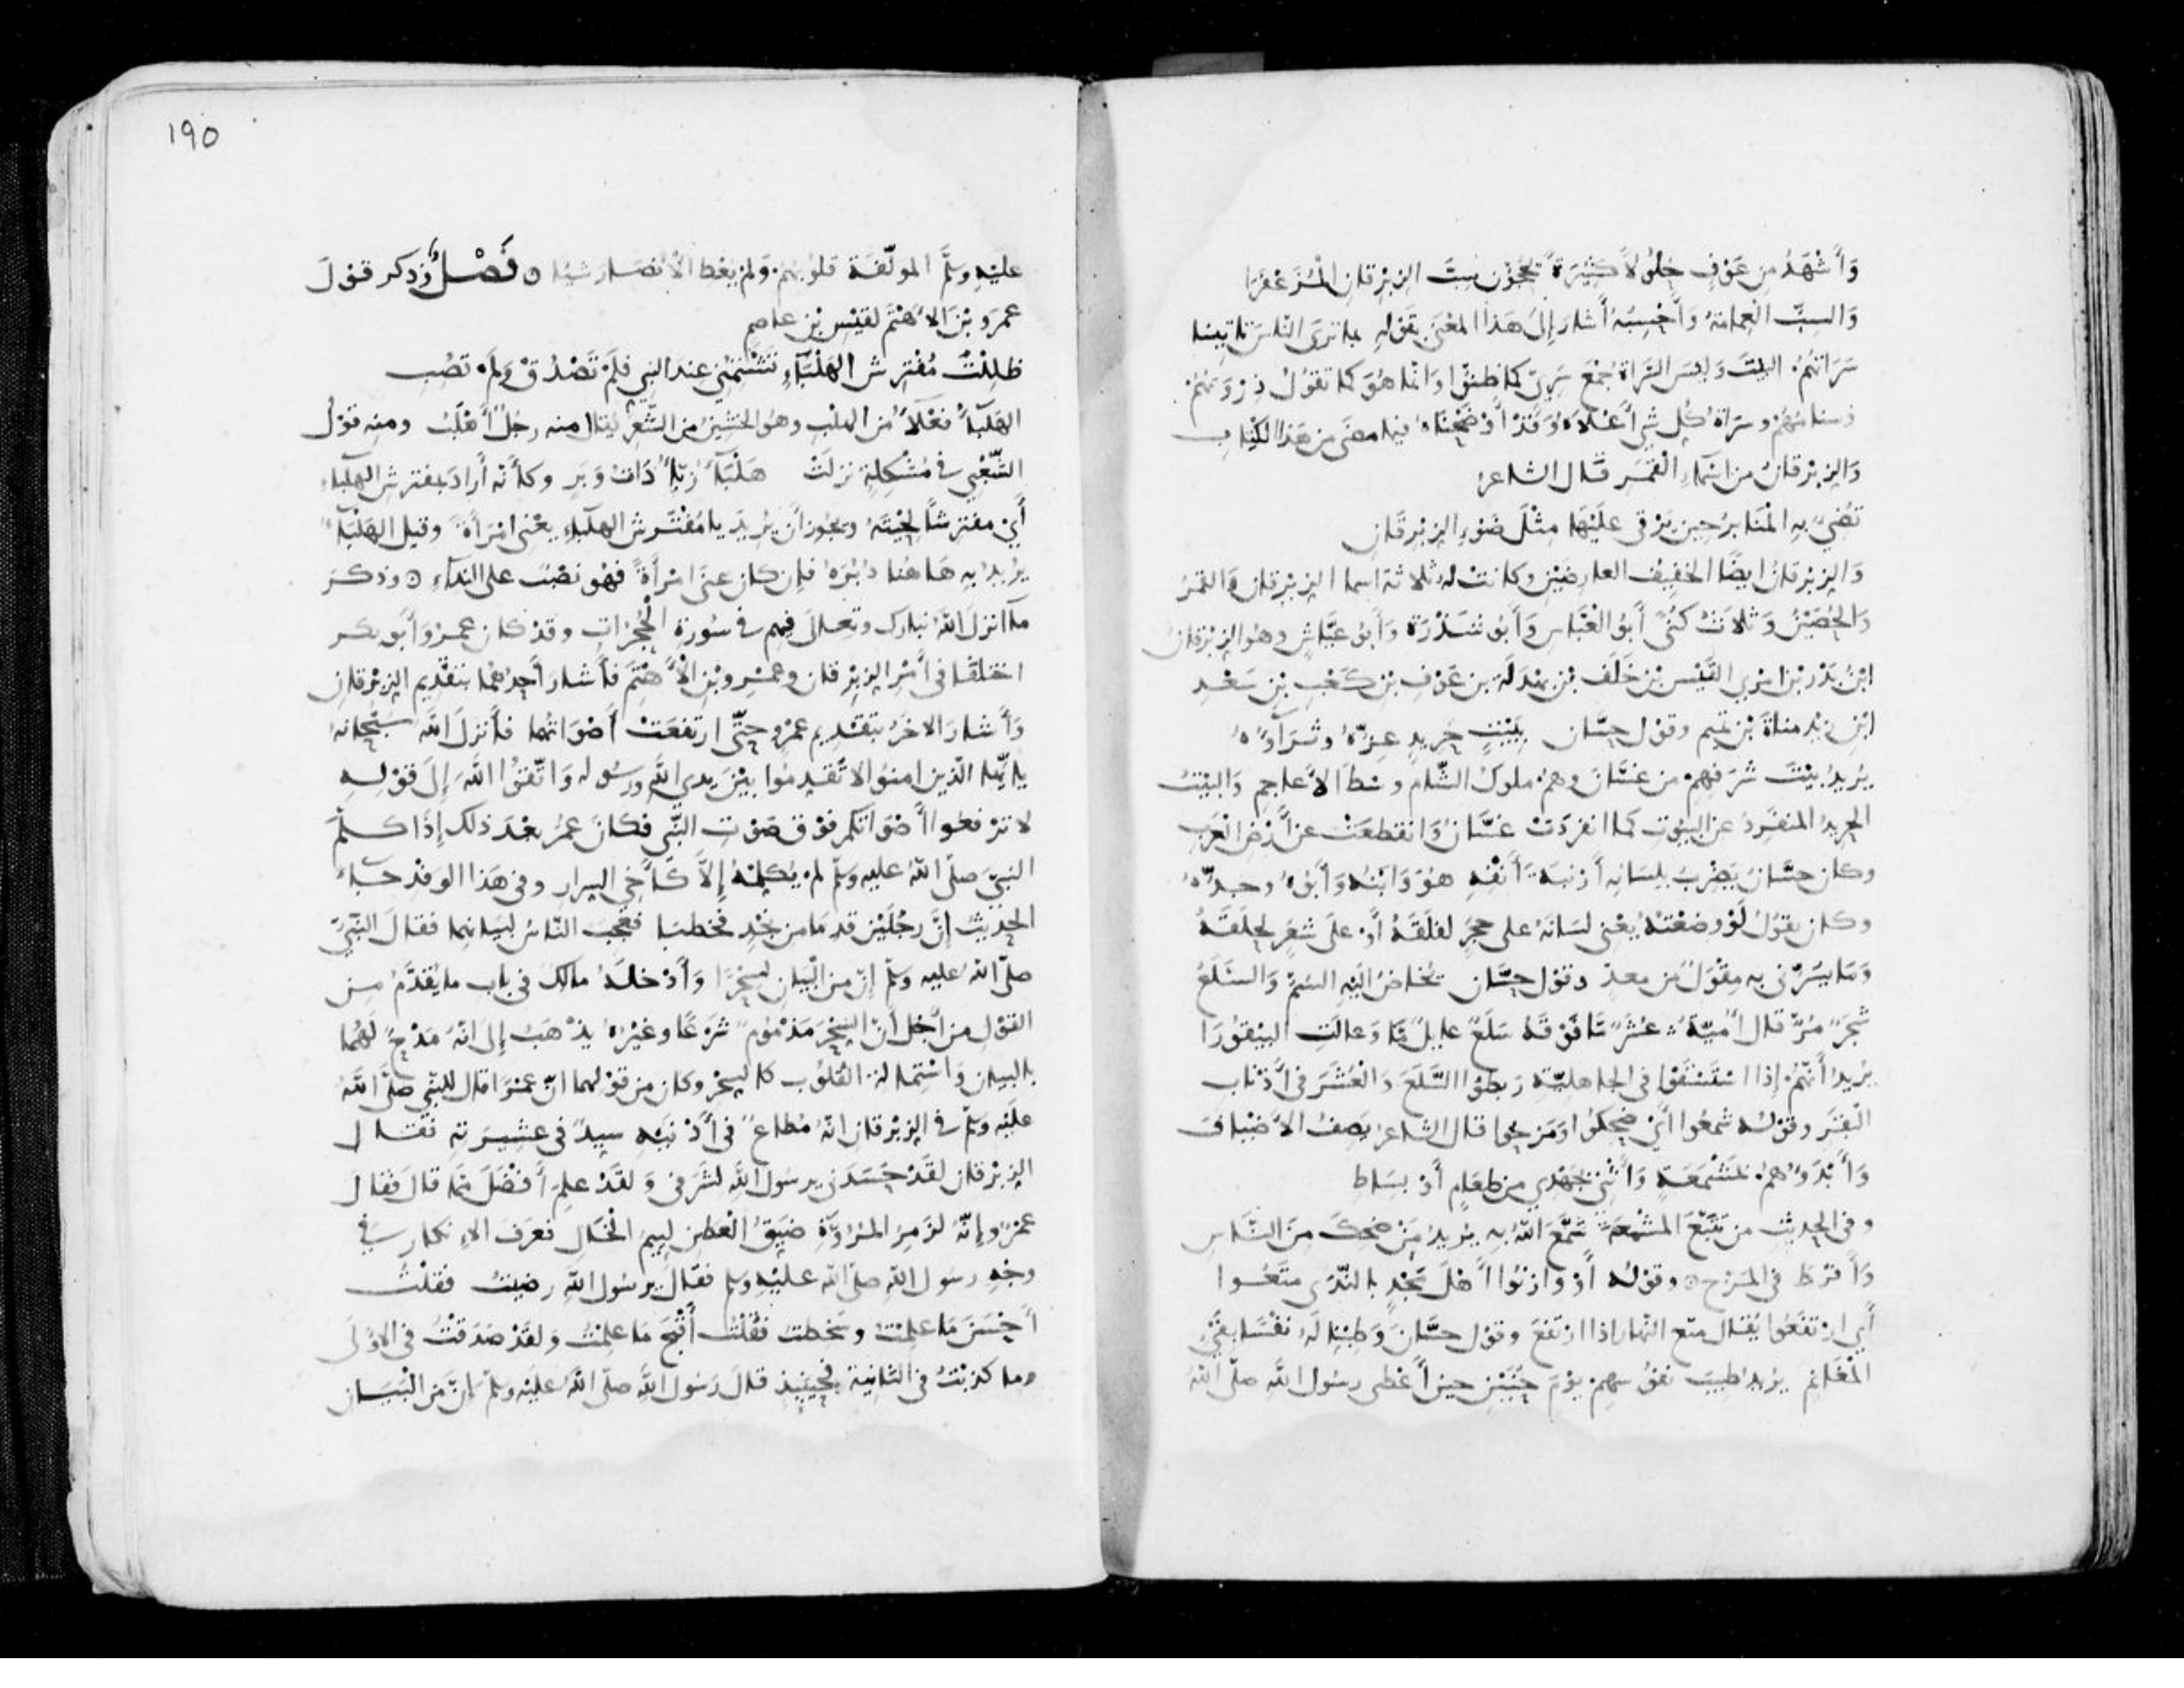 وَأَشْهَدُ من عَوْفٍ حُلُولاً كَثِيْرَةً يَحُجُّوْن سِبَّ الزِبْرِقانِ الْمُزَعْفَرَا
وَالسِبّ العِمامَةُ وَأَحْسِبُهُ أَشَارَ إِلَى هَذا المعْنَى بقَوْلِهِ بما ترَى النَّاسَ تاتِينا
سَرَاتهُمُ البيت وَليْسَ السَّراة جُمْع سَرِيّ كما ظنّوْا وَانما هُوَ كما تقُوْلُ ذِرْوَتهُمْ
وسنامُهُمْ وسَرَاة كُلِ شي أَعْلَاهُ وَقَدْ أَوْضَحْناهُ فيما مضَى من هَذا الكِتَابِ
وَالزِبْرِقانُ من اسْمَاءِ القَمَرِ قَال الشاعرُ
تُضِيُ بهِ الْمَنابِرُ حِين يَرْقى عَلَيْهَا مِثْلَ ضَوْءِ الزِبْرِقَانِ
وَالزِبْرِقانُ ايضًا الخفِيْفُ العارضَيْنِ وكانتْ له ثلاثة اسما الزِبْرِقان وَالقمَرُ
وَالحُصَيْنُ وَثلاثُ كُنًى أَبُو العَبَّاسِ وَأَبُو شَذْرَة وَأَبُو عَيَّاشٍ وهُو الزِبْرِقانُ
ابْنُ بَدْرِ بْن امْرِي القَيْسِ بْنِ خَلَف بْن بَهْدَلَة بن عَوْفِ بْنِ كَعْبِ بْنِ سَعْدِ
ابْنِ زيْد مناة بْن تمِيم وقوْل حسَّان بِبَيْتٍ حَرِيدٍ عِزُّهُ وثَرَآوُهُ
يُرِيدُ بيْتَ شَرَفِهِمْ من غسَّانَ وهُمْ ملوكُ الشّام وسْطَ الأَعاجِمِ وَالبَيْتُ
الحرِيْدُ المنفَرِدُ عن البيُوْتِ كما انفرَدَتْ غسَّانُ وَانقطعَتْ عن أَرْضِ العَرَبِ
وكان حسَّانُ يَضْرِبُ بلِسَانِهِ أَرْنبَة أَنْفِهِ هُوَ وَابْنُهُ وَأَبُوهُ وجدُّهُ
وكان يقُوْلُ لَوْ وضَعْتُهُ يعْنِي لسَانَهُ على حجَرٍ لفلَقَهُ أَوْ على شعَرٍ لحَلَقَهُ
وَمَا يسُرّني به مِقْوَلٌ من معدّ وقوْل حسَّان يُخاضُ الَيْهِ السُمّ وَالسَّلَعُ
شجَرٌ مُرٌّ قال أُميّةُ عُشَرٌ مَا فَوْقَهُ سَلَعٌ عايلٌ مَا وَعالَتِ البَيْقُوْرَا
يُرِيدُ أَنَّهُمْ إِذا اسْتَسْقَوْا في الجاهِليّة رَبطوا السَّلَعَ وَالعُشَرَ في أَذْنابِ
البقَرِ وقوْله شمَعُوا أَيْ ضحِكُوا وَمَزَحُوا قال الشاعِرُ يَصِفُ الأَضْيَافَ
وَأَبْدَوُهُمُ بمَشْمَعَةٍ وَأَثْنِي بجُهْدِي من طعَامٍ أَوْ بسَاطِ
وفي الحدِيثِ من تتَبَّعَ المَشْمَعَةَ شمَّعَ اللهُ بهِ يُرِيدُ مَنْ ضحِكَ مِنَ النَّاسِ
وَأَفْرَط في المَزْحِ ٥ وقوْله أَوْ وازنُوا أَهْلَ مَجْدٍ بالنّدَى متَعُوا
أَي ارْتفَعُوا يُقال متع النّهار اذا ارْتفَعَ وقوْل حسَّانَ وَطِبْنا لَهُ نفْسًا بفَيْءِ
الْمَغَانِمِ يُرِيدُ طِيبَ نفوْسِهِمْ يَوْمَ حُنَيْنٍ حين أَعْطى رسُولُ اللهِ صلّى اللهُ
١٩٥
عليْهِ وسلَّم المولَّفَة قلوْبهُمْ وَلم يعْطِ الأنْصَارَ شيْئا ٥ فَصْلٌ وَذكر قوْلَ
عمرو بْن الأَهْتَم لقيْسِ بْن عاصِمٍ
ظَلِلْتَ مُفْتَرِشَ الهَلْبَاءِ تَشْتمُنِي عندَ النبِي فلَمْ تَصْدُقْ وَلَمْ تصُبِ
الهَلْبَاءُ فَعْلاءُ من الهلْبِ وهُو الخَشِينُ من الشَّعَرِ يُقال منه رجُلٌ أَهْلَبُ ومنه قوْلُ
الشّعْبِي في مُشْكِلةٍ نزلَتْ هَلْبَآءُ زبّاءُ ذَاتُ وَبَرٍ وكأَنَّه أَرادَ بمفترِش الهلباء
أَيْ مفترِشًا لحْيَتَهُ ويجُوز أن يُرِيدَ يا مُفْتَرِش الهلْبَاءِ يعْني امْرَأَةً وقيل الهَلْبَآءُ
يُرِيدُ بهِ هَاهُنا دُبُرَهُ فإِن كان عنَى امْرأَةً فهُو نَصْبٌ على النِدَآءِ ٥ وذكَرَ
مآ انزَلَ اللهُ تبَارَك وتعَالَى فِيهِم في سُورَةِ الْحُجُرَاتِ وقدْ كان عمرُ وَأَبو بكر
اختلفَا في أَمْرِ الزبْرِقان وعمْرِو بْنِ الْأَهْتَمِ فأَشار أَحدُهُمَا بتقْدِيم الزبْرِقانِ
وَأَشارَ الاخَرُ بتقْدِيمِ عمْرٍو حتَّى ارتفعَتْ أَصْوَاتُهُما فأَنزلَ اللهُ سبْحَانَهُ
يا أيّها الّذين امنوا لا تُقَدِمُوا بيْنَ يدي اللهِ ورسُوله وَاتّقوا اللهَ إِلَى قوْلِهِ
لا ترْفعُوا أَصْوَاتكم فوْق صوْتِ النّبِي فكانَ عمرُ بعْدَ ذلك إِذا كلَّمَ
النبيَّ صلّى اللهُ عليهِ وسلّم لمْ يُكلِّمْهُ إِلَّا كأَخِي السِرارِ وفي هَذا الوفْدِ جآءَ
الحدِيثُ إِنَّ رجُلَيْنِ قدِمَا من نجْدٍ فخطبَا فعجِبَ النّاسُ لبيَانِهِما فقالَ النّبِيُّ
صلّى اللهُ عليهِ وسلّم إِنّ من البَيانِ لسِحْرًا وَأَدْخلَهُ مالِكٌ في باب ما يُقدَّمُ من
القوْلِ من أَجْلِ أَنّ السِحْرَ مَذْمُومٌ شَرْعًا وغيْرُهُ يذْهَبُ إِلَى انّهُ مَدْحٌ لَهُما
بالبيانِ وَاسْتِمالةِ القُلُوْبِ كالسِحْرِ وكان من قوْلِهما انّ عمْروًا قال للنّبِي صلّى اللهُ
عليْهِ وسلّم في الزِبْرِقانِ انّهُ مُطاعٌ في أَدْنيْهِ سيِدٌ في عشِيرَتِهِ فقال
الزِبْرِقان لقَدْ حسَدَنِي يرسُولَ اللهِ لشَرَفي وَلقَدْ علِمَ أَفْضَلَ مِمّا قالَ فقال
عمْرٌو إِنّهُ لزَمِرُ المُرُوّةِ ضيّقُ العَطَنِ لئِيمُ الْخَالِ فعُرِفَ الاِنكارُ في
وجْهِ رسُول اللهِ صلّى اللهُ عليْهِ وسلم فقالَ يرسُولَ اللهِ رضِيتُ فقُلْتُ
أَحْسَنَ مَا علِمْتُ وسَخِطتُ فقُلْتُ أَقْبَحَ مَا علِمْتُ وَلقَدْ صدَقْتُ في الاوْلَى
وما كذبْتُ في الثّانِيةِ فحِينَئِذٍ قالَ رَسُول اللهِ صلّى اللهُ عليْهِ وسلّم إِنّ من البَيَانِ